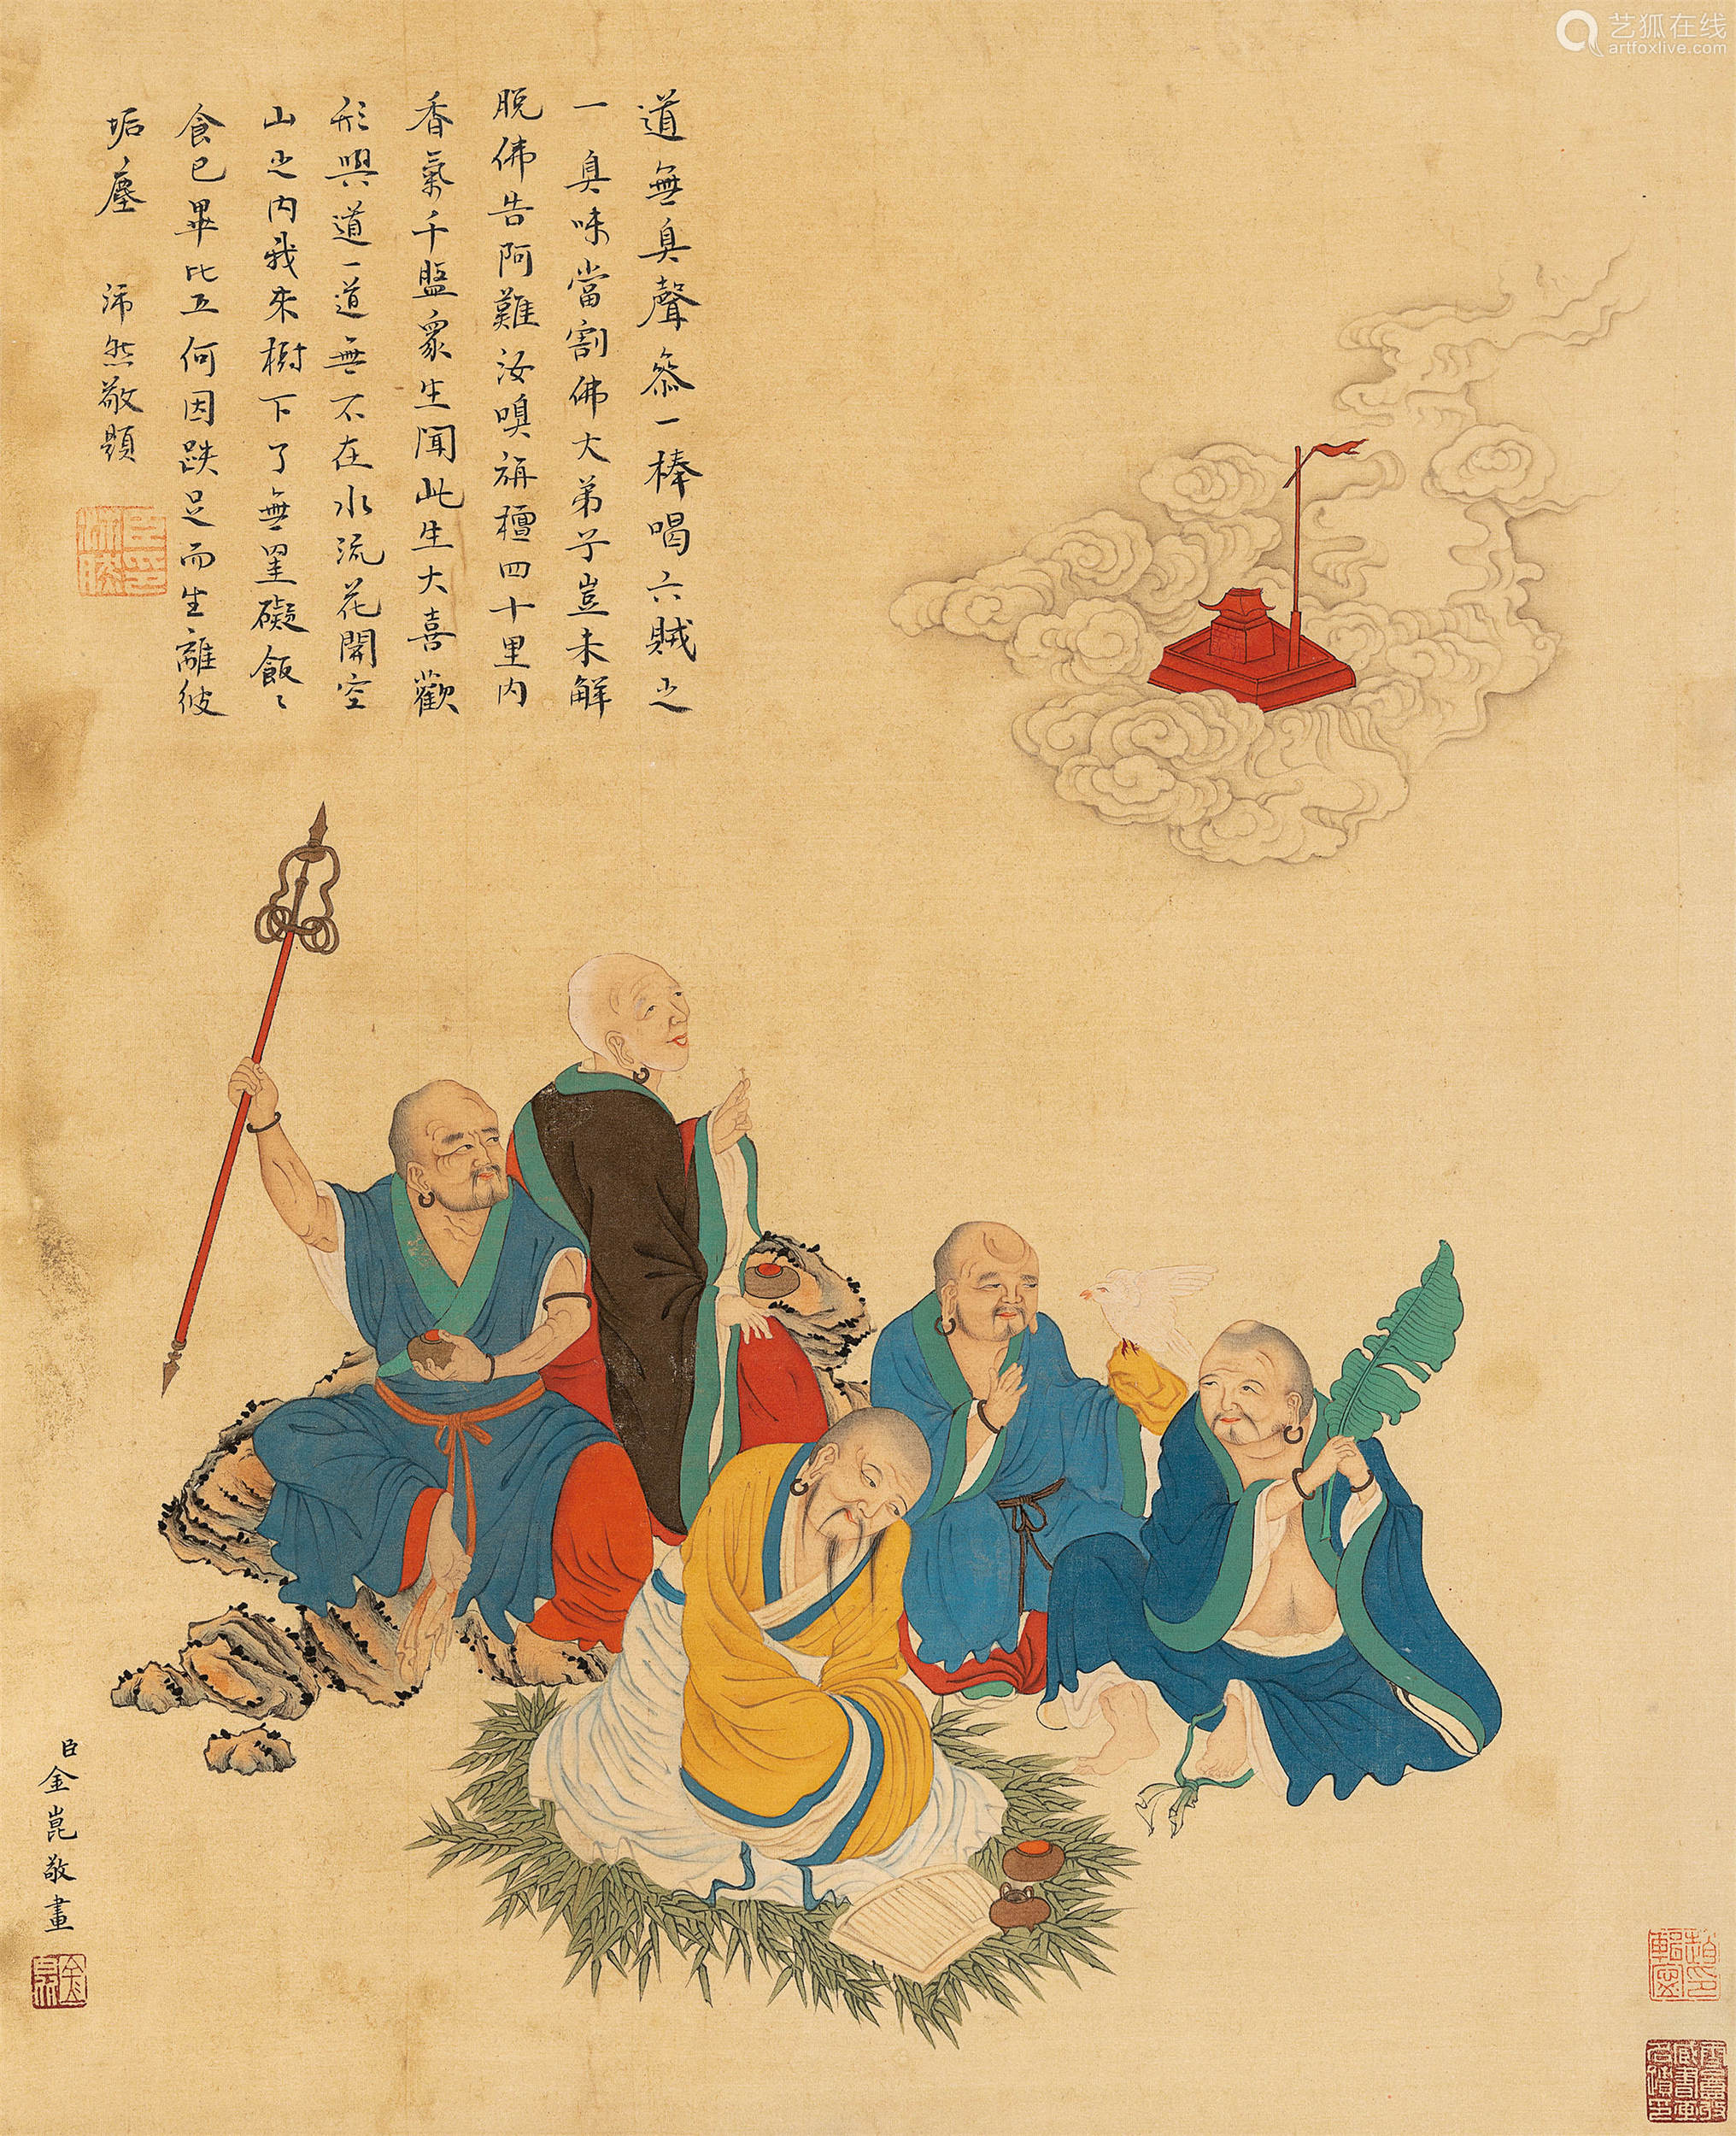 道無臭聲參一棒喝六賊之
一臭味當割佛大弟子豈未解
脫佛告阿難汝嗅旃檀四十里内
香氣千盤眾生聞此生大喜歡
形與道一道無不在水流花開空
山之内我来樹下了無罣礙飯〻
食已畢比丘何因趺足而生離彼
垢塵 沛然敬題
臣金崑敬畫
艺狐在线
artfoxlive.com